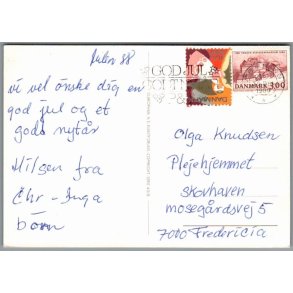 Julen 88
vi vil ønske dig en
god jul og et
godt nytår
Hilsen fra
Chr - Inga
børn
GOD JUL
DANMARK
DANMARK 3.00
Olga Knudsen
Plejehjemmet
skovhaven
mosegårdsvej 5
7000 Fredericia